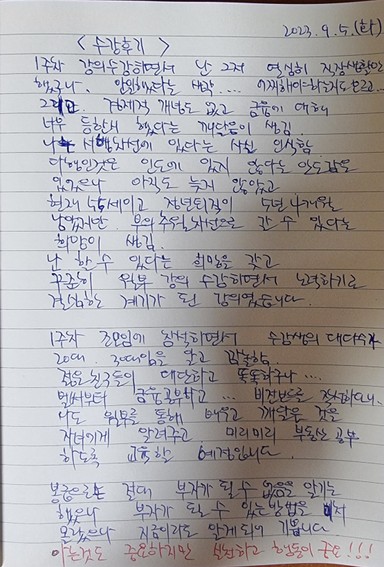 2023. 9. 5. (화)
< 수강후기 >
1주차 강의수강하면서 난 그저 열심히 직장생활만
했구나. 안일했다는 생각... 어찌해야하는지도 모르고...
그리고 경제적 개념도 없고 금융에 대해
너무 등한시 했다는 깨달음이 생김.
나는 서행차선에 있다는 사실 인식함
다행인것은 인도에 있지 않다는 안도감은
있었으나 아직도 늦지 않았고
현재 55세이고 정년퇴직이 5년 나개월
남았지만 부의 추월차선으로 갈 수 있다는
희망이 생김.
난 할 수 있다는 희망을 갖고
꾸준히 월부 강의 수강하면서 노력하기로
결심한 계기가 된 강의였습니다.
1주차 조모임에 참석하면서 수강생의 대다수가
20대, 30대임을 알고 깜놀함.
젊은 친구들이 대단하고 똑똑하구나....
벌써부터 금융공부하고... 비전보드를 작성하다니..
나도 월부를 통해 배우고 깨달은 것을
자녀에게 알려주고 미리미리 부동산 공부
하도록 교육할 예정입니다.
봉급으로는 절대 부자가 될 수 없음을 알기는
했으나 부자가 될 수 있는 방법을
몰랐으나 지금이라도 알게되어 기쁩니다
아는것도 중요하지만 실천하고 행동이 굿!!!